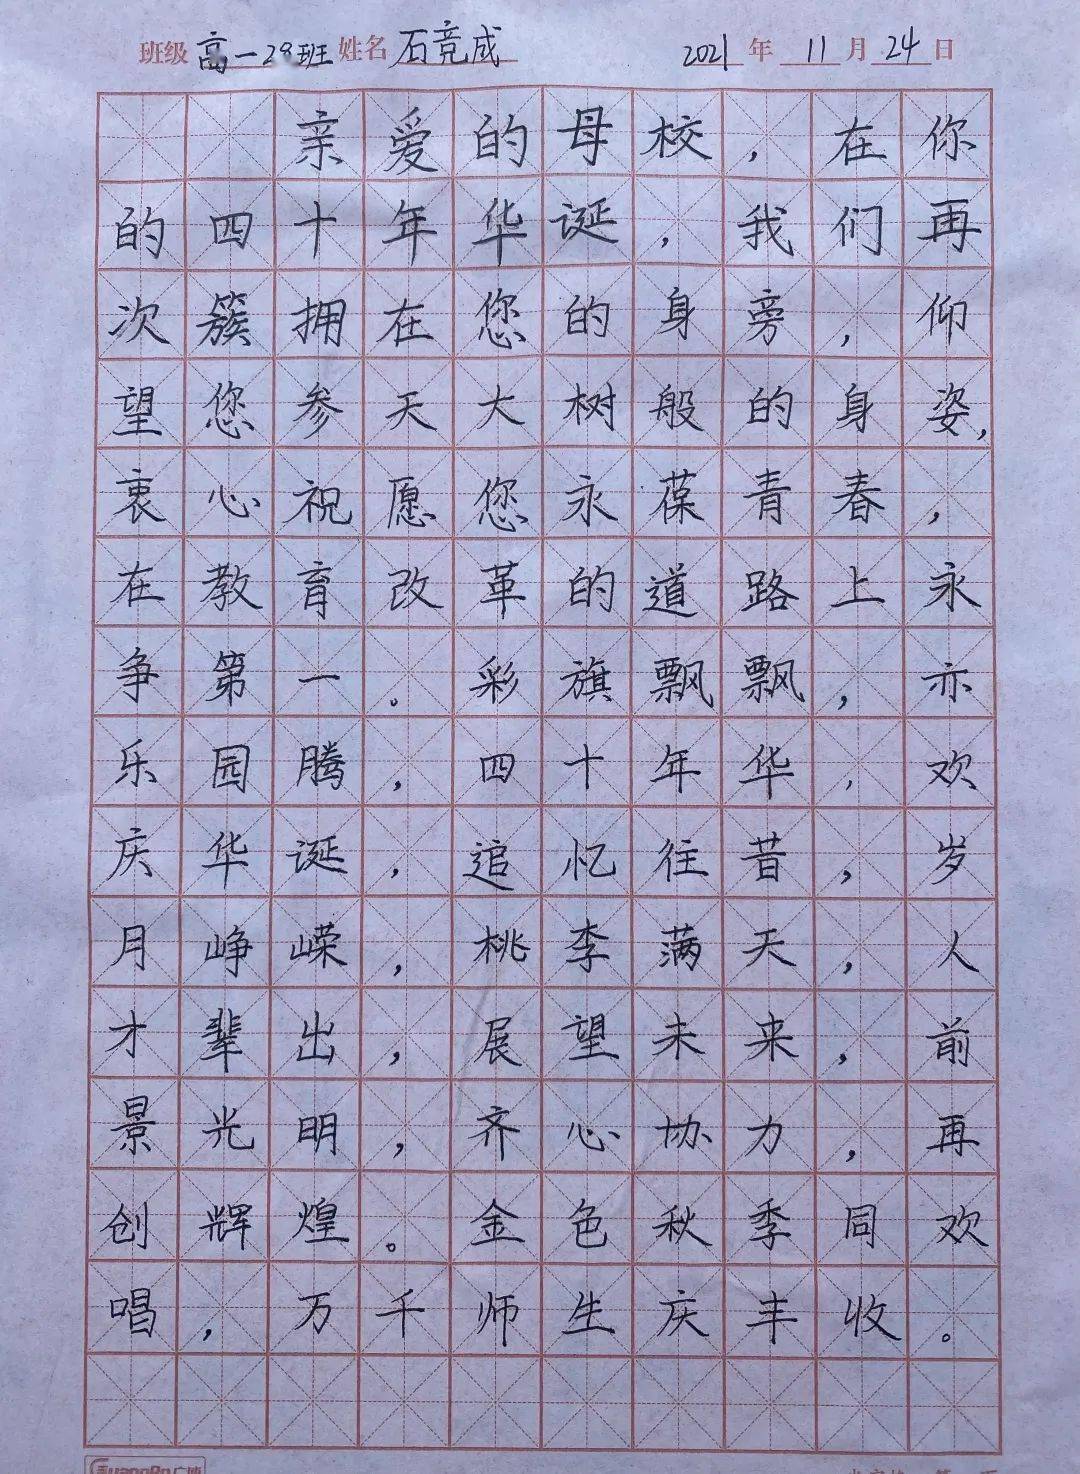 班级 高一28班 姓名 石竞成 2021 年 11 月 24 日
亲爱的母校，在你
的四十年华诞，我们再
次簇拥在您的身旁，仰
望您参天大树般的身姿，
衷心祝愿您永葆青春，
在教育改革的道路上永
争第一。彩旗飘飘，亦
乐园腾，四十年华，欢
庆华诞，追忆往昔，岁
月峥嵘，桃李满天，人
才辈出，展望未来，前
景光明，齐心协力，再
创辉煌。金色秋季同欢
唱，万千师生庆丰收。
GuangBo广博